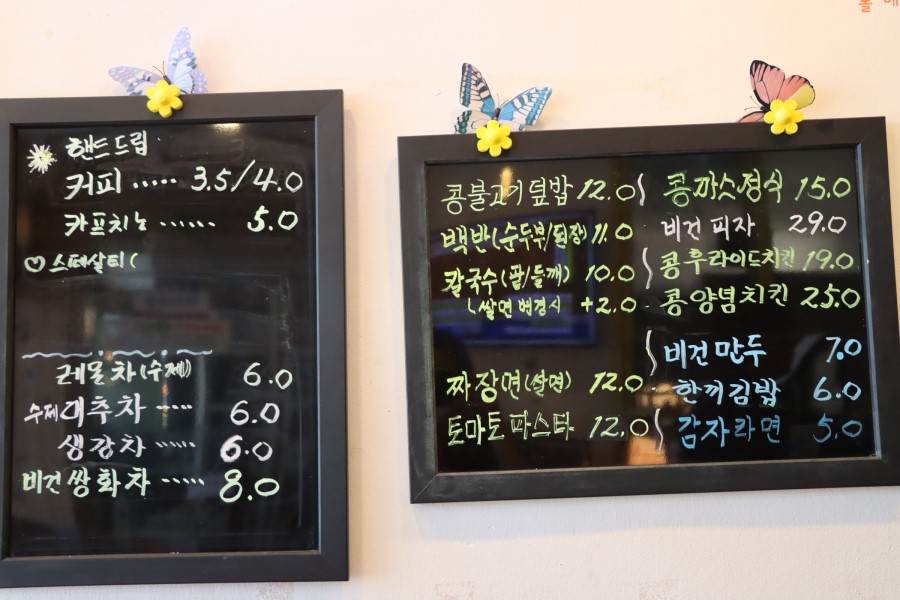 핸드드립
커피 ..... 3.5/4.0
카프치노 ...... 5.0
♡ 스페샬티(
레몬차(수제) 6.0
수제대추차 .... 6.0
생강차 ..... 6.0
비건쌍화차 ..... 8.0
콩불고기덮밥 12.0
백반(순두부/된장) 11.0
칼국수(팥/들깨) 10.0
└쌀면변경시 +2.0
짜장면(쌀면) 12.0
토마토파스타 12.0
콩까스정식 15.0
비건피자 29.0
콩후라이드치킨 19.0
콩양념치킨 25.0
비건만두 7.0
한끼김밥 6.0
감자라면 5.0